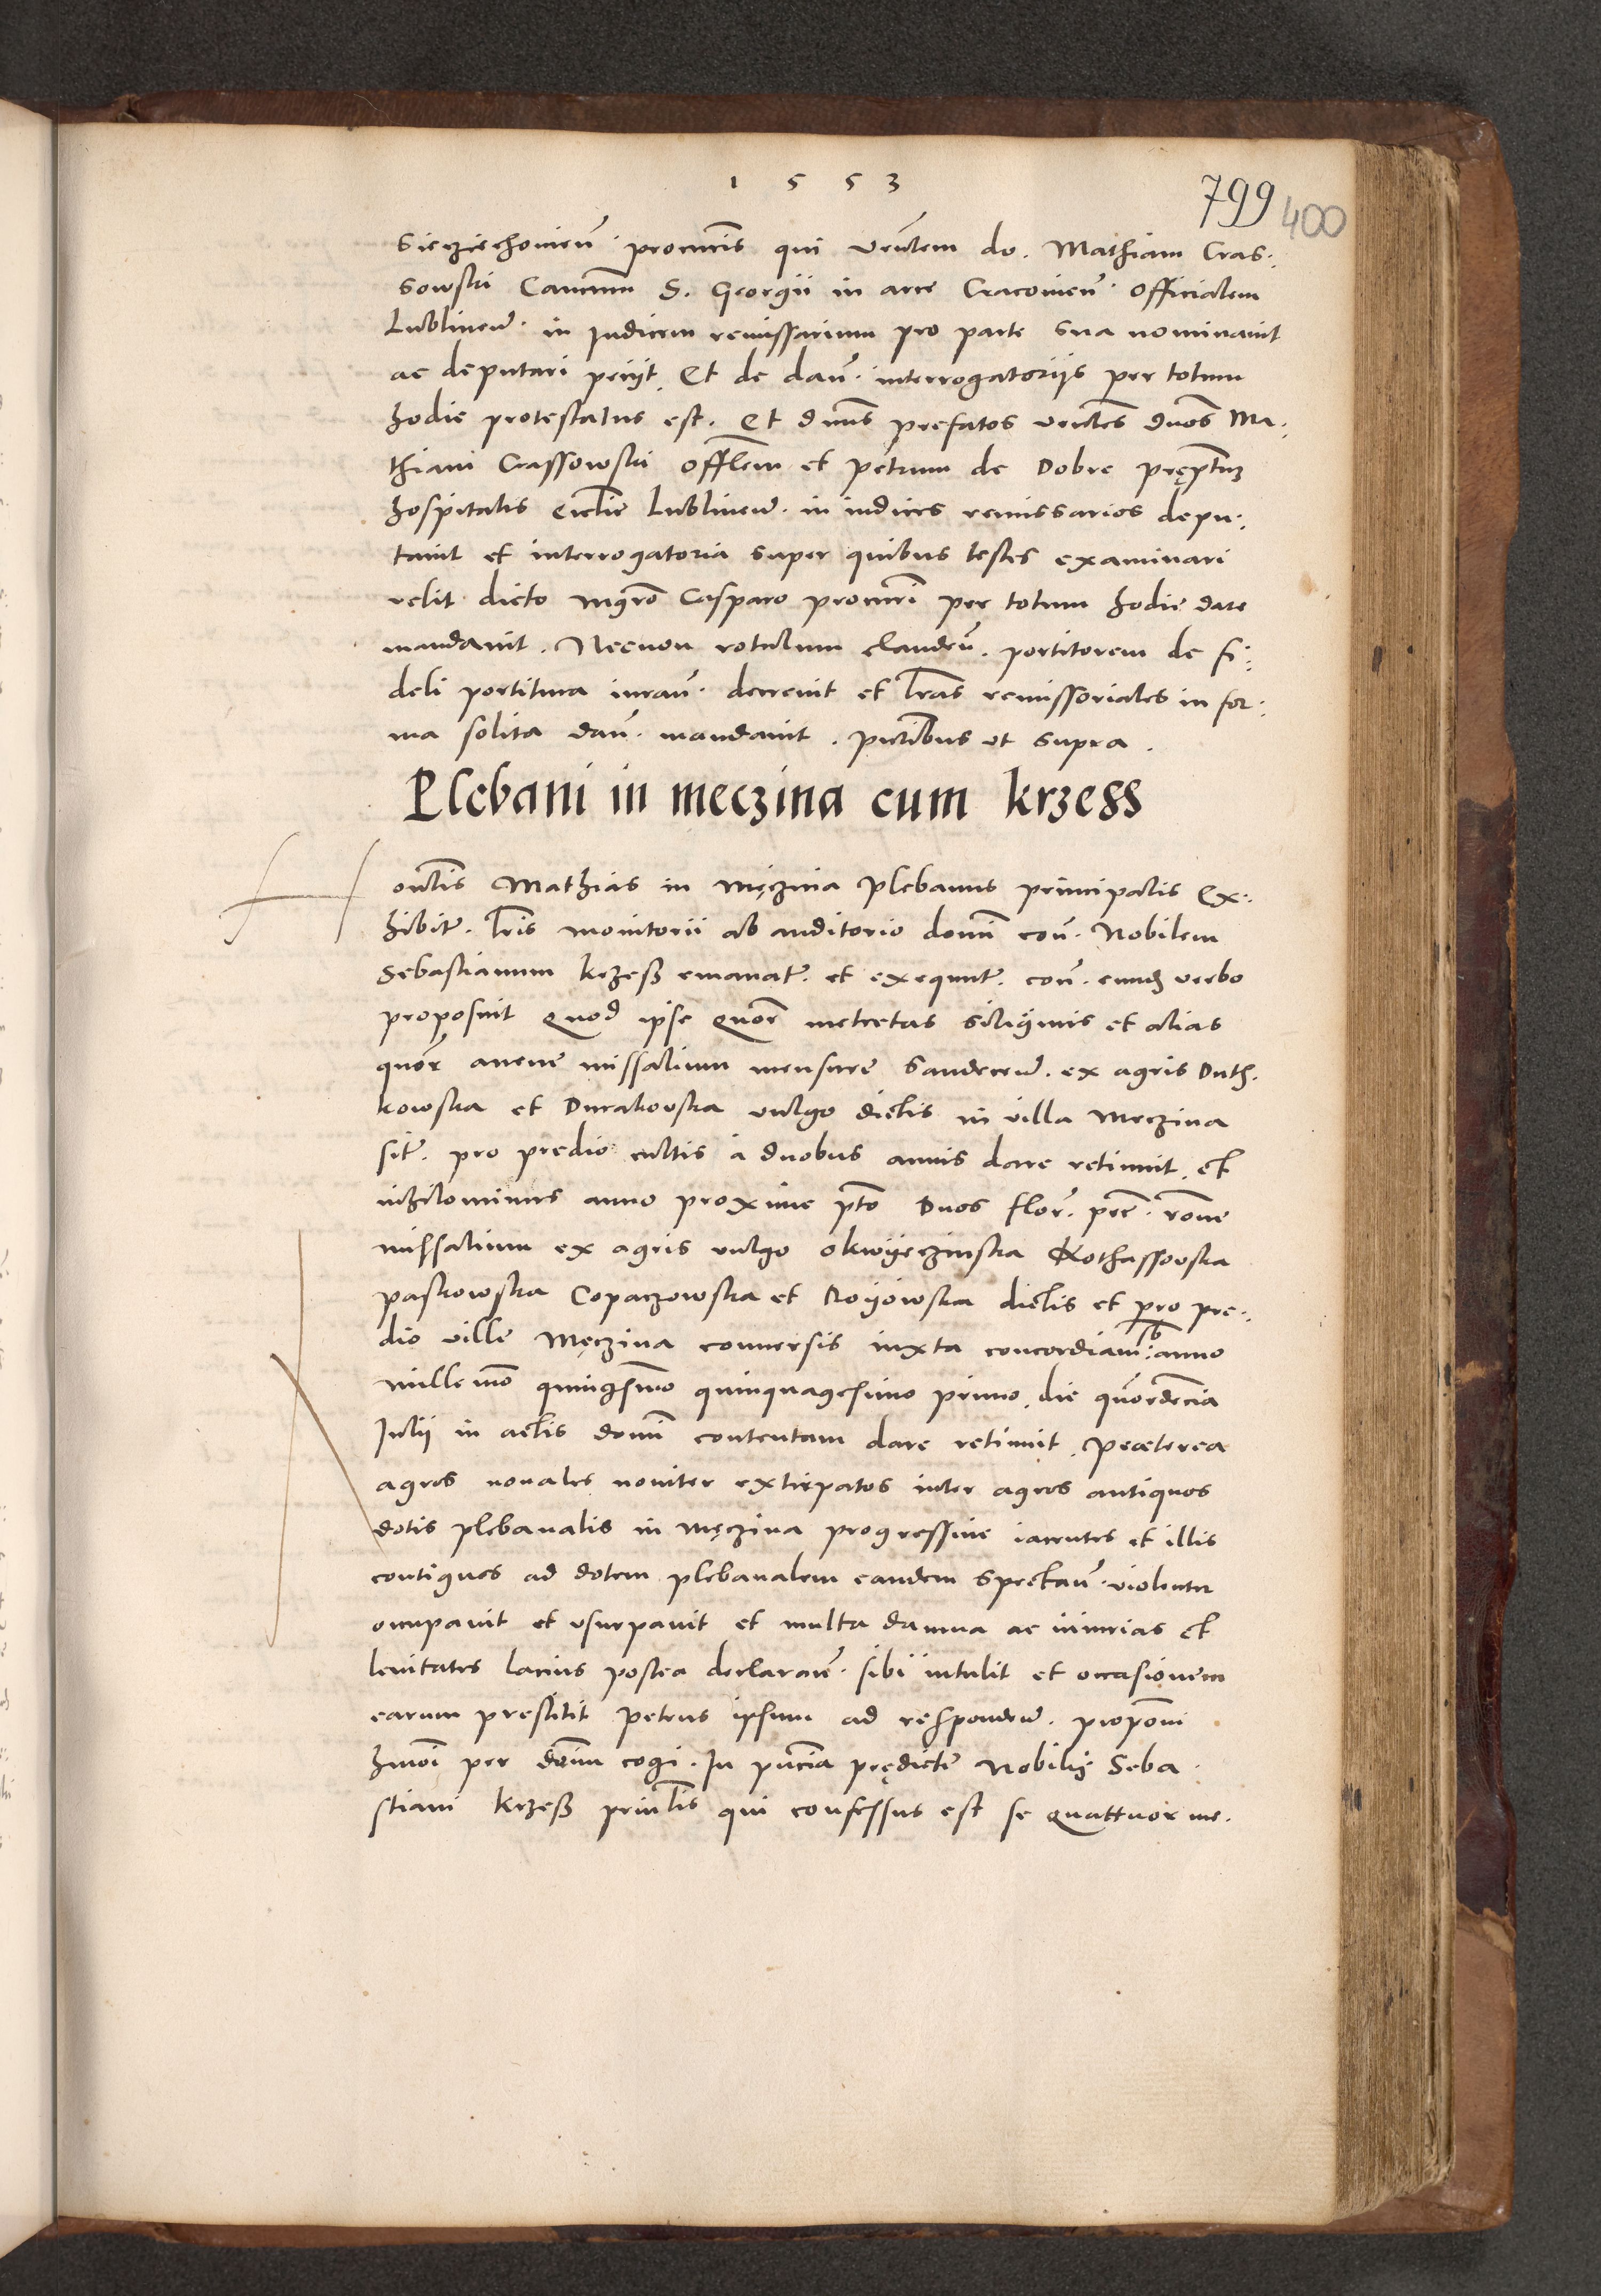 1 5 5 3
799 400
Sieziechouien̄. procur̄is qui Ven̄lem do. Mathiam Cras.
sowski Can̄cum S. Georgii in arce Cracouien̄. officialem
Lublinen̄. in iudicem remissarium pro parte sua nominauit
ac deputari petiit. Et de dan̄. interrogatoriis per totum
hodie protestatus est. Et d n̄us prefatos ven̄les dn̄os Ma.
thiam Crassowski offlem et Petrum de Dobre pręptum
hospitalis Ecclie Lublinen̄. in iudices remissarios depu.
tauit et interrogatoria super quibus testes examinari
velit dicto mgr̄o Casparo procur̄i per totum hodie dare
mandauit. Necnon rotulum claudен̄. portitorem de fi.
deli portitura iuran̄. decreuit et lr̄as remissoriales in for.
ma solita dan̄. mandauit. pn̄tibus vt supra.
Plebani in meczina cum krzess
Hon̄lis Mathias in Męczina Plebanus principalis Ex.
hibitr̄. lr̄is monitorii ab auditorio domi con̄. Nobilem
Sebastianum krzeß emanatr̄. et exequutr̄. con̄. eundem verbo
proposuit Quod ipse quor̄ metretas siliginis et alias
quor̄ auene missalium mensure Sandecen̄. ex agris Duth.
kowska et Durakowska vulgo dictis in villa Meczina
sitr̄. pro predio cultis a duobus annis dare retinuit. et
nihilominus anno proxime pto Duos flor̄. pec̄. ron̄e
missalium ex agris vulgo okwyeczinska Kothassowska
Paskowska Copaczowska et Royowska dictis et pro pre.
dio ville Męczina conuersis iuxta concordiam sb anno
millemo quingsmo quinquagesimo primo, die quordecia
Iulii in actis domi contentam dare retinuit. Preeterea
agros nouales nouiter extirpatos inter agros antiquos
dotis plebanalis in Męczina progressiue iacentes et illis
contiguos ad dotem plebanalem eandem spectan̄. violenter
occupauit et vsurpauit et multa damna ac iniurias et
leuitates lacius postea declaran̄. sibi intulit et occasionem
earum prestitit Petens ipsum ad responden̄. propon̄i
hmōi per dōnum cogi. In pn̄cia prędicti Nobilis Seba.
stiani krzeß prin̄lis qui confessus est se quattuor me.